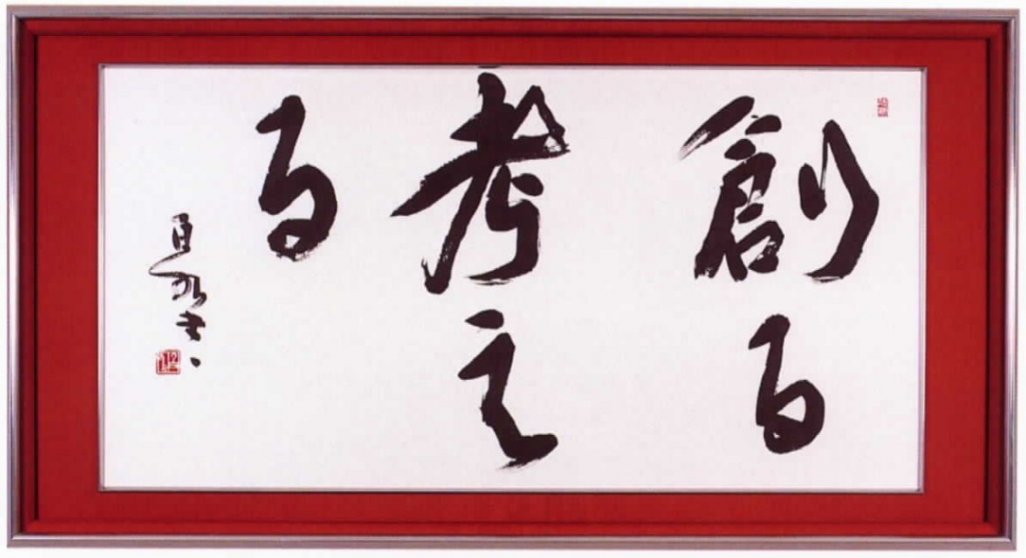 創る
考える